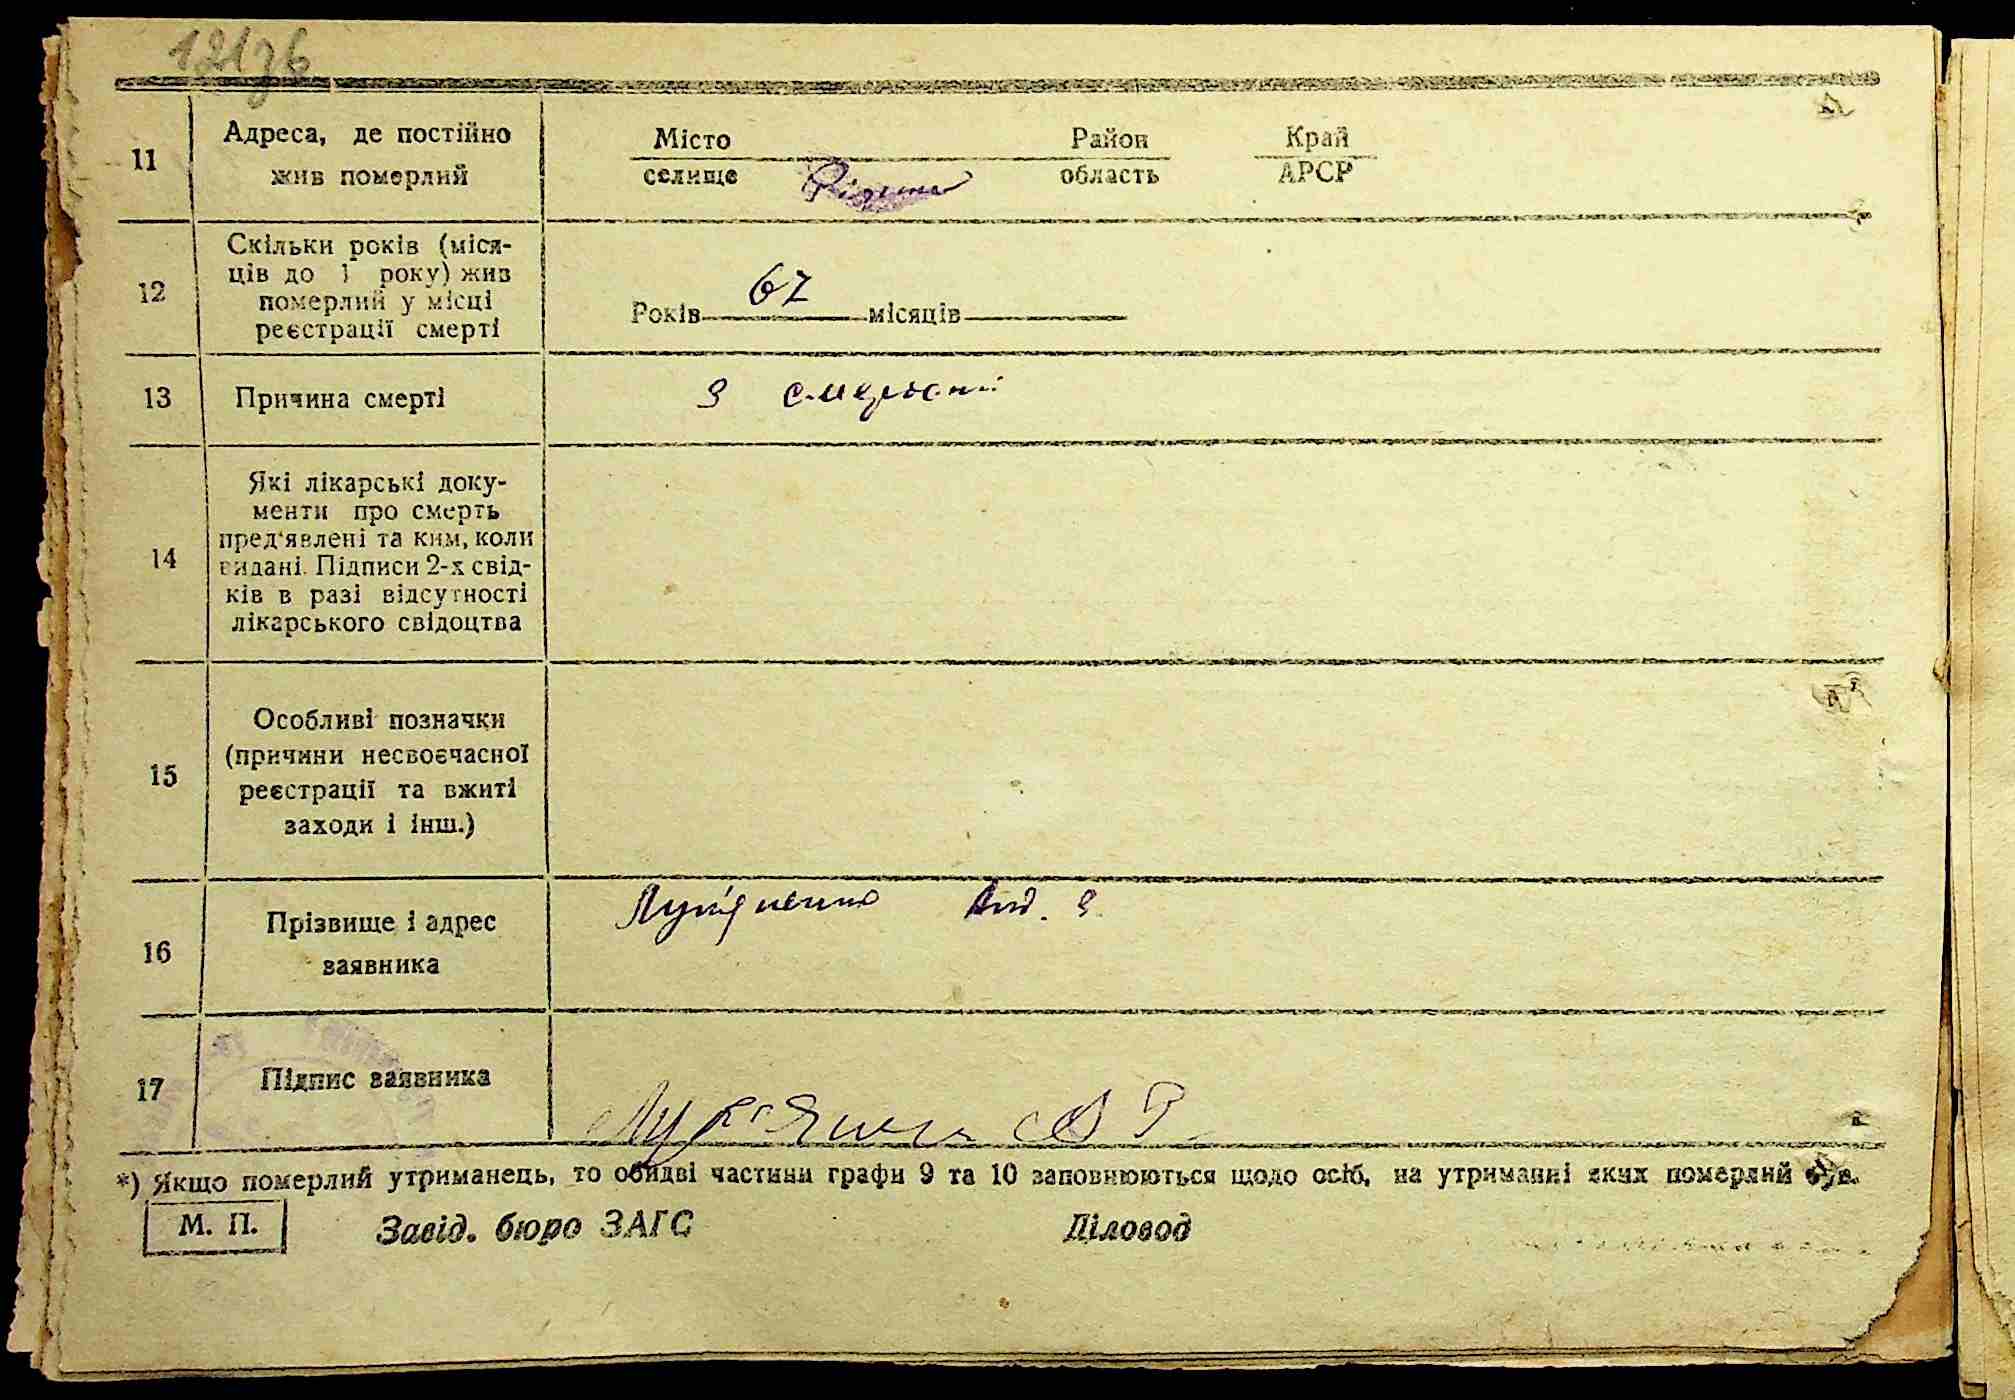 11 Адреса, де постійно
жив померлий
Місто
селище
Район
область
Край
АРСР
12 Скільки років (міся-
ців до 1 року) жив
померлий у місці
реєстрації смерті
Років 67 місяців
13 Причина смерті
З
14 Які лікарські доку-
менти про смерть
пред'явлені та ким, коли
видані. Підписи 2-х свід-
ків в разі відсутності
лікарського свідоцтва
15 Особливі позначки
(причини несвоєчасної
реєстрації та вжиті
заходи і інш.)
16 Прізвище і адрес
заявника
17 Підпис заявника
*) Якщо померлий утриманець, то обидві частини графи 9 та 10 заповнюються щодо осіб, на утриманні яких померлий був.
М. П. Завід. бюро ЗАГС Діловод